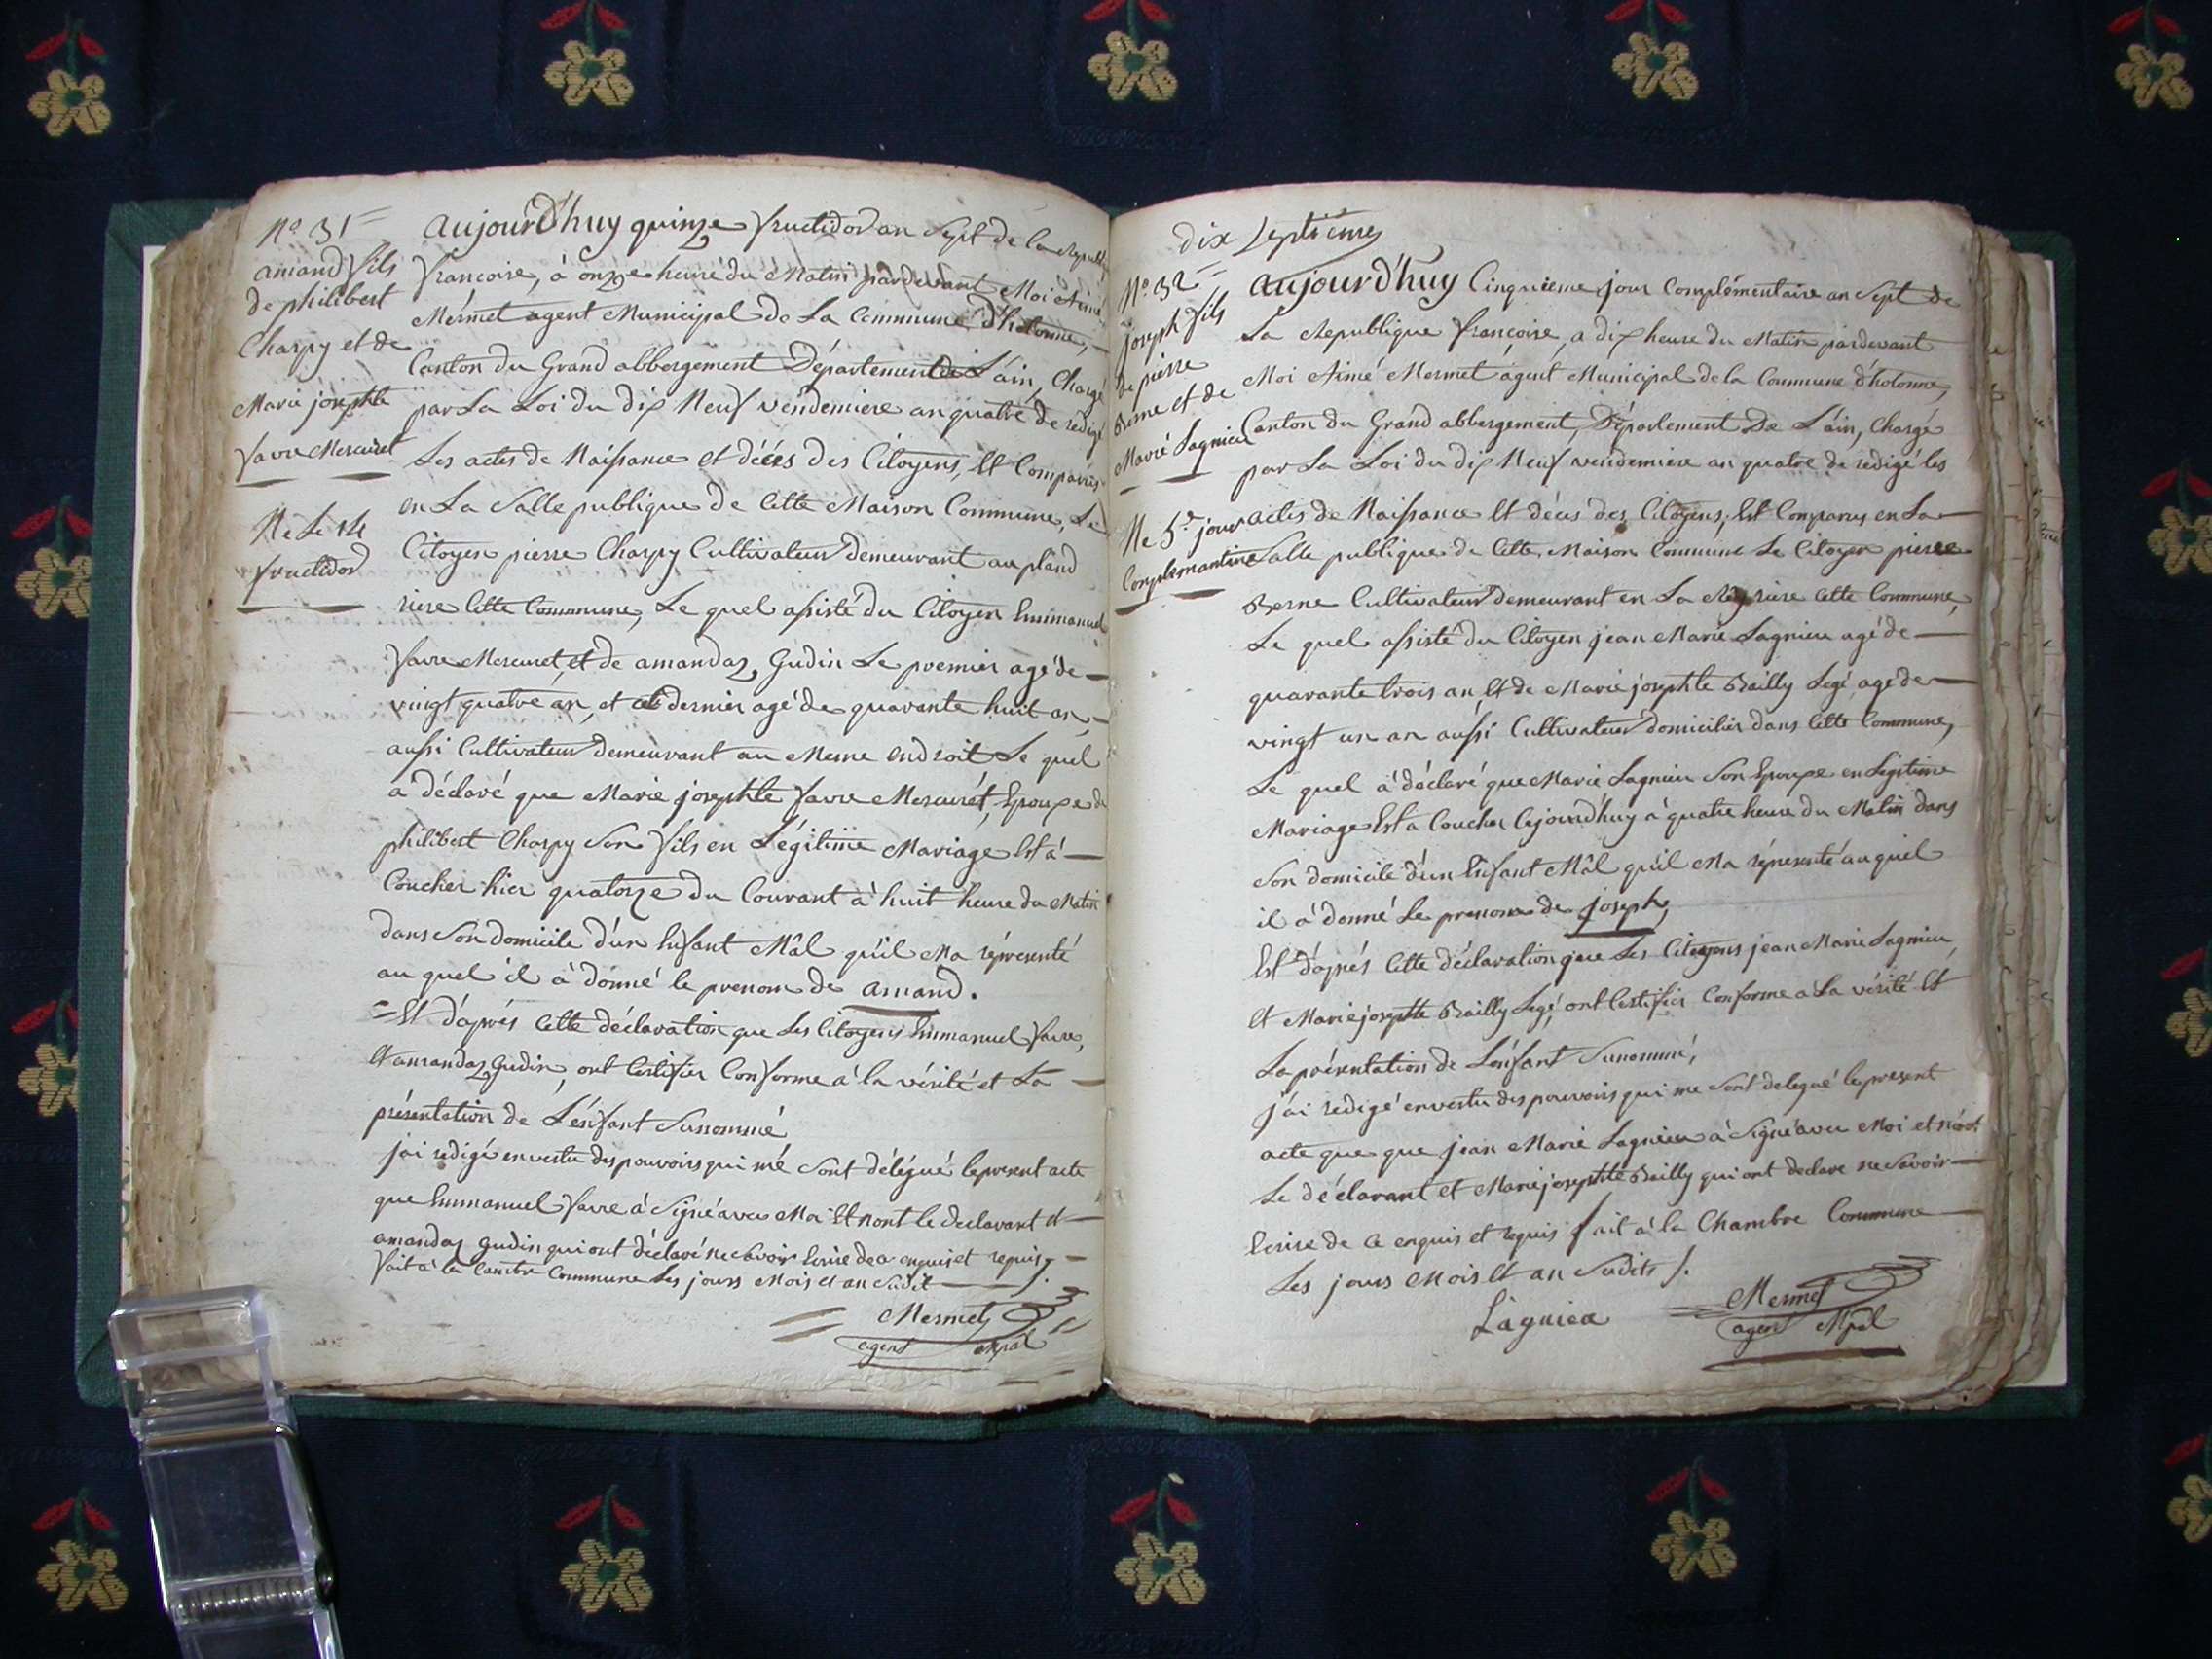 No 31
amand fils
de philibert
Charpy et de
Marie josephte
favre Mercuret
Né Le 14
fructidor
aujourd'huy quinze fructidor an Sept de la Republ
francoise, à onze heure du Matin pardevant Moi Aimé
Mermet agent Municipal de La Commune d'hotonne,
Canton du Grand abbergement Département de L'áin, Chargé
par La Loi du dix Neuf vendemiere an quatre de redigé
Les actes de Naissance et décés des Citoyens, Est Comparus
en La Salle publique de Cette Maison Commune, Le
Citoyen pierre Charpy Cultivateur demeurant au pland
riere Cette Commune, Le quel assisté du Citoyen Emmanuel
favre Mercuret, et de amandaz Gudin Le premier agé de
vingt quatre an, et dernier agé de quarante huit an
aussi Cultivateur demeurant au Meme endroit Le quel
a déclaré que Marie josephte favre Mercurét, Epouse de
philibert Charpy Son fils en Légitime Mariage Est à
Coucher hier quatorze du Courant à huit heure du Matin
dans Son domicile d'un Enfant Mâl qu'il Ma répresenté
au quel il à donné le prenom de amand.
Et d'aprés Cette déclaration que Les Citoyens Emmanuel favre,
Et amandaz Gudin, ont Certifier Conforme à la vérité et La
présentation de L'énfant Sunommé
j'ai redigé en vertu des pouvoirs qui mé Sont délégué le present acte
que Emmanuel favre à Signé avec Moi Et nont le declarant et
amandaz gudin qui ont déclaré ne Savoir Ecrire de a enquis et requis
fait à la Cambre Commune Les jours Mois et an Sudit
Mermet
agent Mpal
dix Septième
No 32
joseph fils
de pierre
Berne et de
Marie Lagnieu
Né 5e jour
Complemantaire
aujourd'huy Cinquieme jour Complémentaire an Sept de
La Republique françoise, a dix heure du Matin pardevant
Moi Aimé Mermet ágent Municipal de la Commune d'hotonne,
Canton du Grand abbergement, Département De L'áin, Chargé
par La Loi du dix Neuf vendemiere an quatre de redigé les
actes de Naissance Et décés des Citoyens, Est Comparus en La
Salle publique de Cette Maison Commune Le Citoyen pierre
Berne Cultivateur demeurant en La riere Cette Commune,
Le quel assisté du Citoyen jean Marie Lagnieu agé de
quarante trois an, Et de Marie josephte Bailly Legé agé de
vingt un an aussi Cultivateur domicilier dans Cette Commune,
Le quel à déclaré que Marie Lagnieu Son Epouse en Légitime
Mariage Est a Coucher Cejourd'huy à quatre heure du Matin dans
Son domicile d'un Enfant Mâl qu'il Ma répresenté au quel
il à donné Le prenom de joseph,
Est d'aprés Cette déclaration que Les Citoyens jean Marie Lagnieu
Et Marie josephte Bailly Legé, ont Certifier Conforme a La vérité Et
La présentation de L'énfant Sunommé,
j'ai redigé en vertu des pouvoirs qui me Sont delegué le present
acte que que jean Marie Lagnieu à Signé avec Moi et
Le déclarant et Marie josephte Bailly qui ont declare ne Savoir
Ecrire de Ce enquis et requis fait à la Chambre Commune
Les jours Mois Et an Sudits
Lagniea
Mermet
agent Mpal